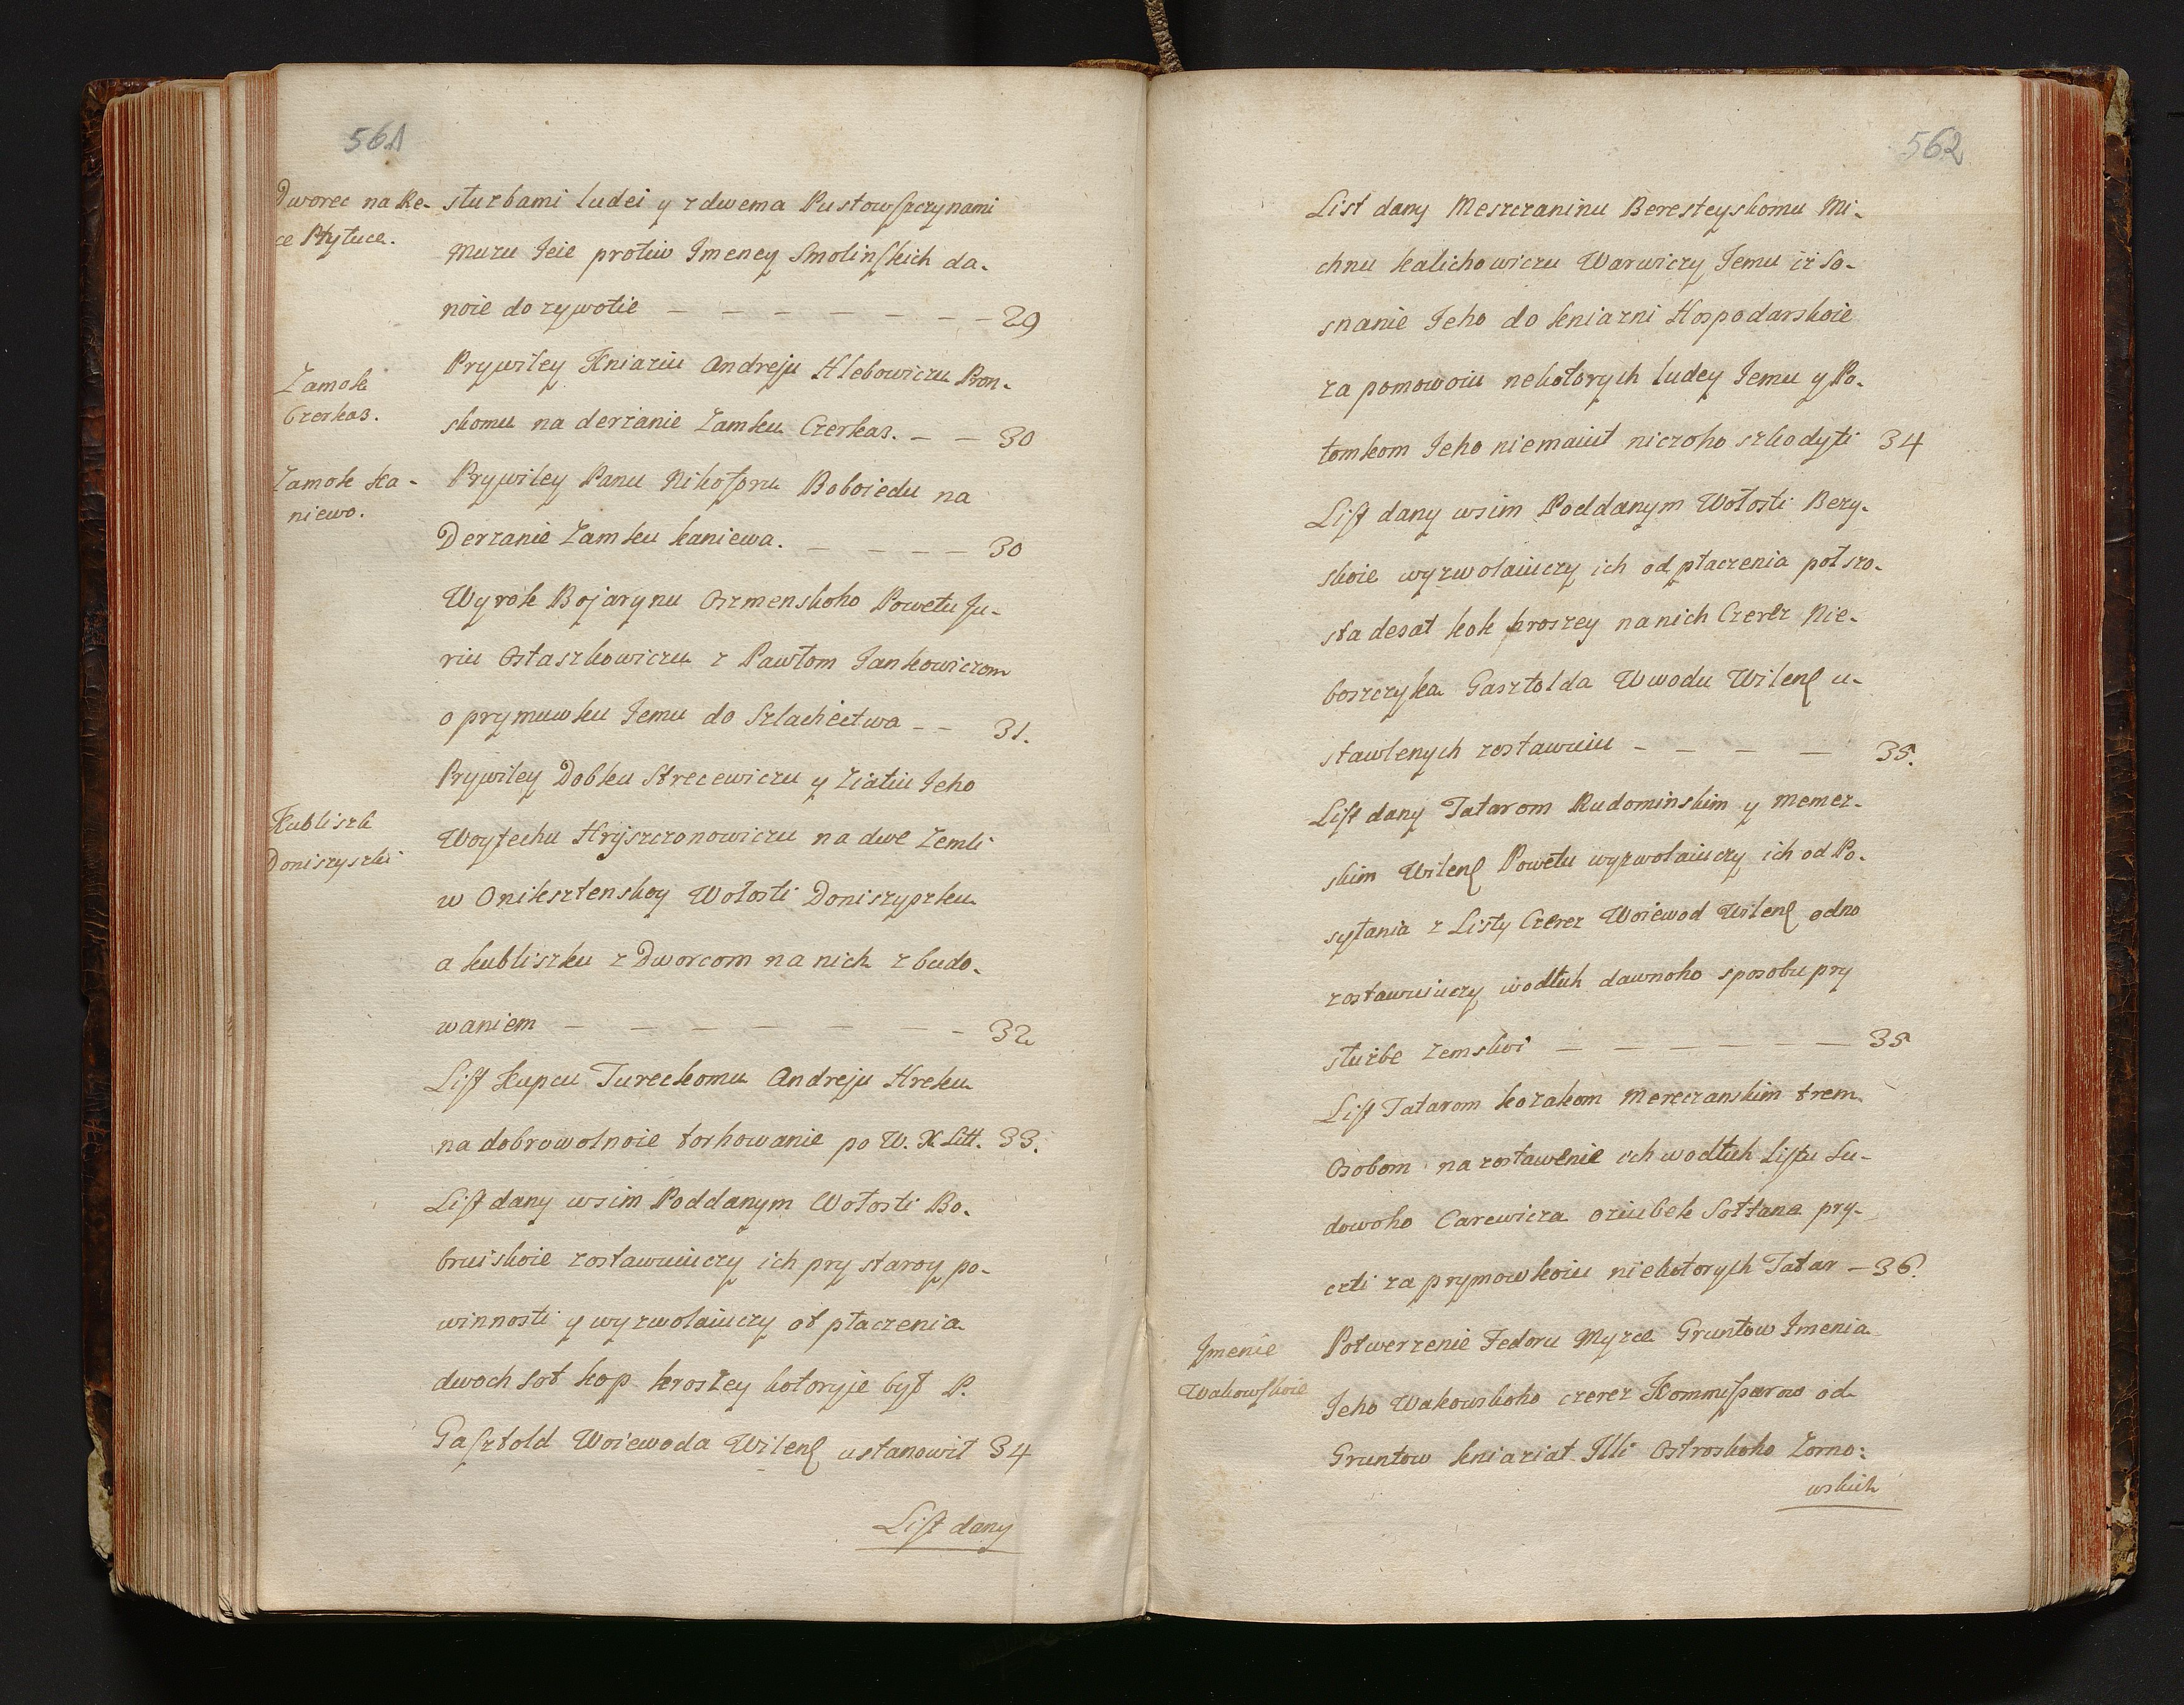 561
Dworec na Re-
ce Ptytuce.
służbami ludei y z dwema Pustowszczynami
Muzu Jeie protiw Jmeney Smolinskich da-
noie do zywotie — — — — — — — 29
Zamok
Czerkas.
Prywiley Kniaziu Andreju Hlebowiczu Pron-
skomu na derżanie Zamku Czerkas. — — 30
Zamok Ka-
niewo.
Prywiley Panu Nikoforu Boboiedu na
Derzanie Zamku Kaniewa. — — — — 30
Wyrok Bojarynu Oszmenskoho Powetu Ju-
riu Ostaszkowiczu z Pawłom Jankowiczom
o prymuwku Jemu do Szlachectwa — — 31.
Kubliszki
Doniszyszki
Prywiley Dobku Strecewiczu y Ziatiu Jeho
Woytechu Hryszczonowiczu na dwe Zemli
w Oniksztenskoy Wołosti Doniszyszku
a Kubliszku z Dworcom na nich zbudo-
waniem — — — — — — — 32
List Kupcu Tureckomu Andreju Hreku
na dobrowolnoie torhowanie po W. X. Litt. 33.
List dany wsim Poddanym Wołosti Bo-
bruiskoie zostawuiuczy ich pry staroy po-
winnosti y wyzwolaiuczy ot płaczenia
dwoch sot kop hroszey kotoryje był P.
Gasztold Woiewoda Wilens ustanowił 34
List dany
562
List dany Meszczaninu Beresteyskomu Mi-
chnu Kalichowiczu Warwiczy Jemu iż So-
snanie Jeho do Kniazni Hospodarskoie
za pomowoiu nekotorych ludey Jemu y Po-
tomkom Jeho niemaiut niczoho szkodyti 34
List dany wsim Poddanym Wołosti Bezy-
skoie wyzwolaiuczy ich od płaczenia połszo-
sta desat kok hroszey na nich Czerez Nie-
boszczyka Gasztolda Wwodu Wilens u-
stawlenych zostawuiu — — — — 35.
List dany Tatarom Rudominskim y Memez-
skim Wilens Powetu wyzwolaiuczy ich od Po-
syłania z Listy Czerez Woiewod Wilens odno
zostawuiuczy wodłuh dawnoho sposobu pry
służbe Zemskoi — — — — — — 35
List Tatarom Kozakom Mereczanskim trem
Osobom na zostawenie ich wodłuh Listu Su-
dowoho Carewicza oziubek Sołtana pry-
czti za prymowkoiu niekotorych Tatar — 36.
Jmenie
Wakowskoie
Potwerzenie Fedoru Myzce Gruntow Jmenia
Jeho Wakowskoho czerez Kommissarow od
Gruntow Kniaziat Illi Ostroskoho Zorno:
wskich